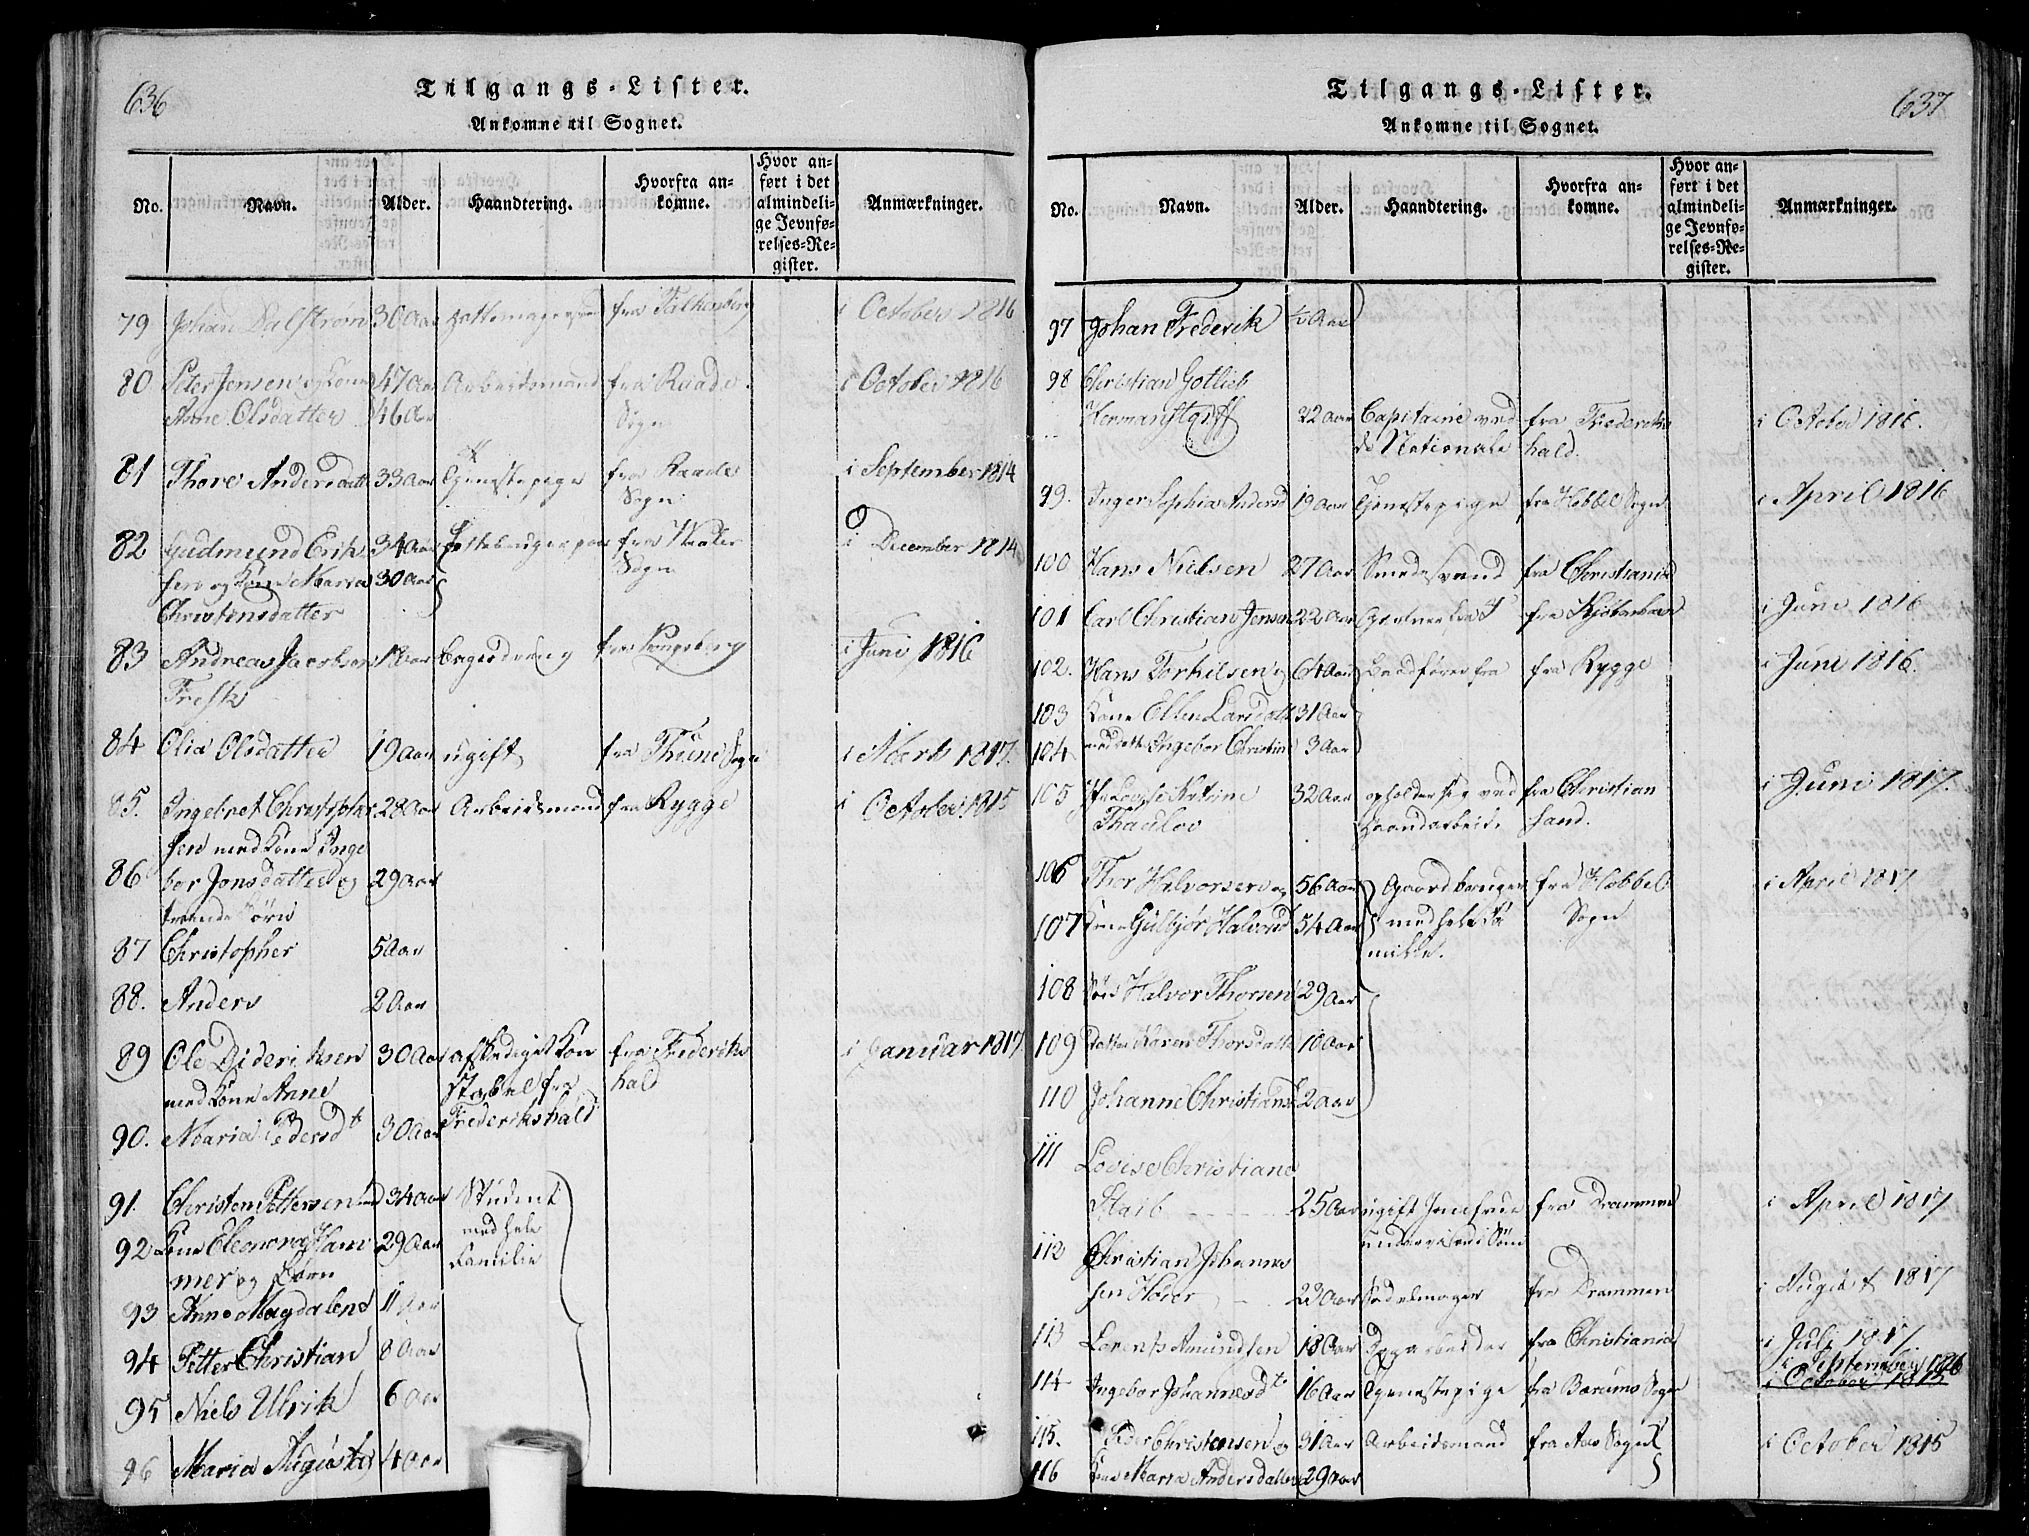 636
Tilgangs-Lister.
Ankomne til Sognet.
No. Navn. Alder. Haandtering. Hvorfra ankomne. Hvor anført i det almindelige Jevnførelses-Register. Anmærkninger.
79 Johan Dalstrøm 30 Aar fra Falkenberg i October 1816
80 Peter Jensen og Kone 47 Aar Arbeidsmand fra Raade i October 1816
Anne Olsdatter 46 Aar Sogn
81 Thore Andersdatt 33 Aar Tjenestepige fra Raade i September 1814
Sogn
82 Gudmund Erik 34 Aar fra Vaaler i December 1814
sen og Kone Maria 30 Aar Sogn
Christensdatter
83 Andreas Jacobsen fra Kongsberg i Juni 1816
Fresk
84 Olia Olsdatter 19 Aar ugift fra Thune Sogn i Marts 1817.
85. Ingebret Christopher 28 Aar Arbeidsmand fra Rygge i October 1815
sen med Kone Inge
86 bor Jonsdatter og 29 Aar
Børn
87 Christopher 5 Aar
88. Anders 2 Aar
89 Ole Dideriksen 30 Aar afskediget Kon fra Frederiks i Januar 1817
med Kone Anne stabel fra hald
90. Maria Pedersdt 30 Aar Frederikshald
91. Christen Pettersen med 34 Aar Student
92 Kone Eleonora Ham 29 Aar med hele
mer og Børn Familie
93 Anne Magdalena 11 Aar
94 Petter Christian 8 Aar
95 Niels Ulrik 6 Aar
96 Maria Augusta 4 Aar
637
Tilgangs-Lister.
Ankomne til Sognet.
No. Navn. Alder. Haandtering. Hvorfra ankomne. Hvor anført i det almindelige Jevnførelses-Register. Anmærkninger.
97 Johan Frederik ½ Aar
98 Christian Gotlieb
22 Aar Capitaine ved fra Frederiks i October 1816.
de Nationale hald.
99. Inger Sophia Andersd 19 Aar Tjenestepige fra Hobbel Sogn i April 1816
100 Hans Nielsen 27 Aar Smedesvend fra Christiania
101 Carl Christian Jensen 22 Aar fra Kjøbenhavn i Juni 1816
102. Hans Torkilsen og 64 Aar fra Rygge i Juni 1816.
103 Kone Ellen Larsdatt 31 Aar
104 med datt Ingebor Christine 3 Aar
105 Katrine 32 Aar opholder sig ved fra Christian i Juni 1817.
Thaulov Haandarbeide sand.
106 Thor Halvorsen og 56 Aar Gaardbruger fra Hobbel i April 1817
107 Kone Gulbjør Halvorsd 54 Aar med hele Fa Sogn
milie.
108 Søn Halvor Thorsen 29 Aar
109 Datter Karen Thorsdatt 10 Aar
110 Johanne Christians 2 Aar
111 Lovise Christiane
Staib 25 Aar ugift Jomfrue fra Drammen i April 1817
112 Christian Johannes
sen Hoier 23 Aar Sadelmager fra Drammen i August 1817
113 Lorents Amundsen 18 Aar fra Christiania i Juli 1817
i September 1816
114 Ingebor Johannesdt 16 Aar Tjenestepige fra Barums Sogn i October 1815
115. Peder Christensen og 31 Aar Arbeidsmand fra Aas Sogn i October 1815
116 Kone Maria Andersdatter 29 Aar